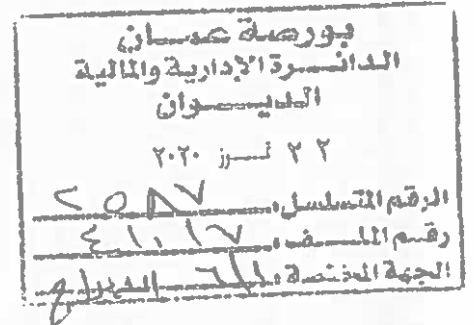 بورصة عمان
الدائرة الإدارية والمالية
الديوان
٢٢ تموز ٢٠٢٠
الرقم المتسلسل: ٢٥٨٧
رقم الملف:
الجهة المختصة: